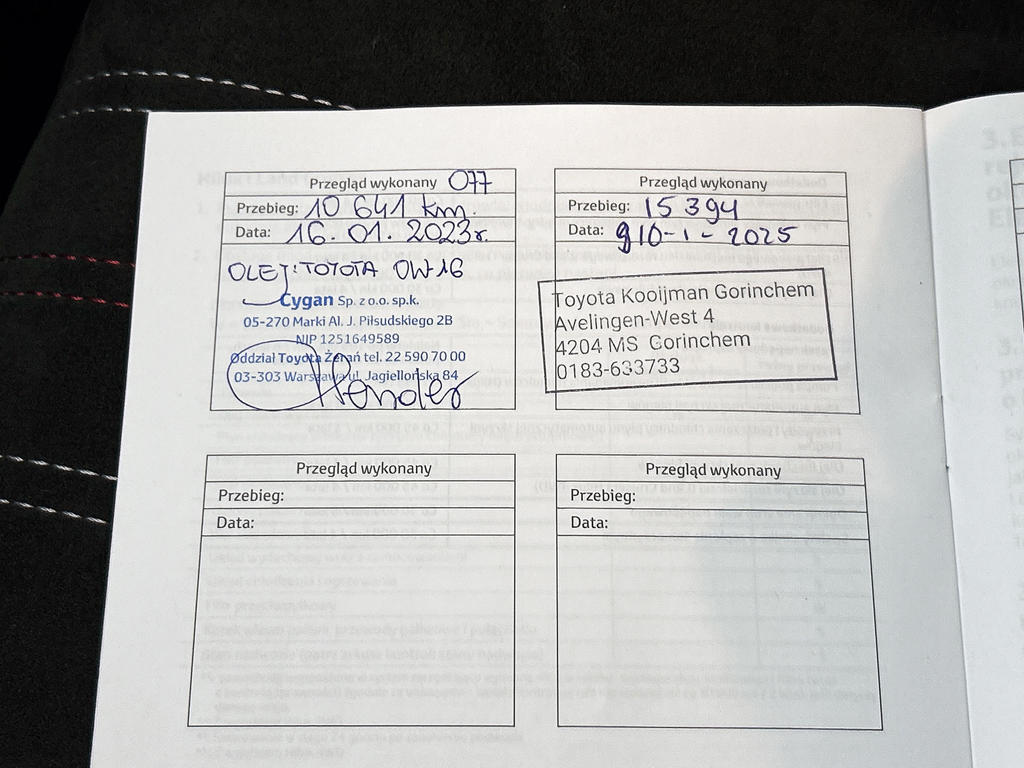 Przegląd wykonany 077
Przebieg: 10 641 km.
Data: 16. 01. 2023r.
OLEJ: TOYOTA 0W-16
Cygan Sp. z o.o. sp.k.
05-270 Marki Al. J. Piłsudskiego 2B
NIP 1251649589
Oddział Toyota Żerań tel. 22 590 70 00
03-303 Warszawa ul. Jagiellońska 84
Przegląd wykonany
Przebieg: 15 394
Data: 10-1-2025
Toyota Kooijman Gorinchem
Avelingen-West 4
4204 MS Gorinchem
0183-633733
Przegląd wykonany
Przebieg:
Data:
Przegląd wykonany
Przebieg:
Data: